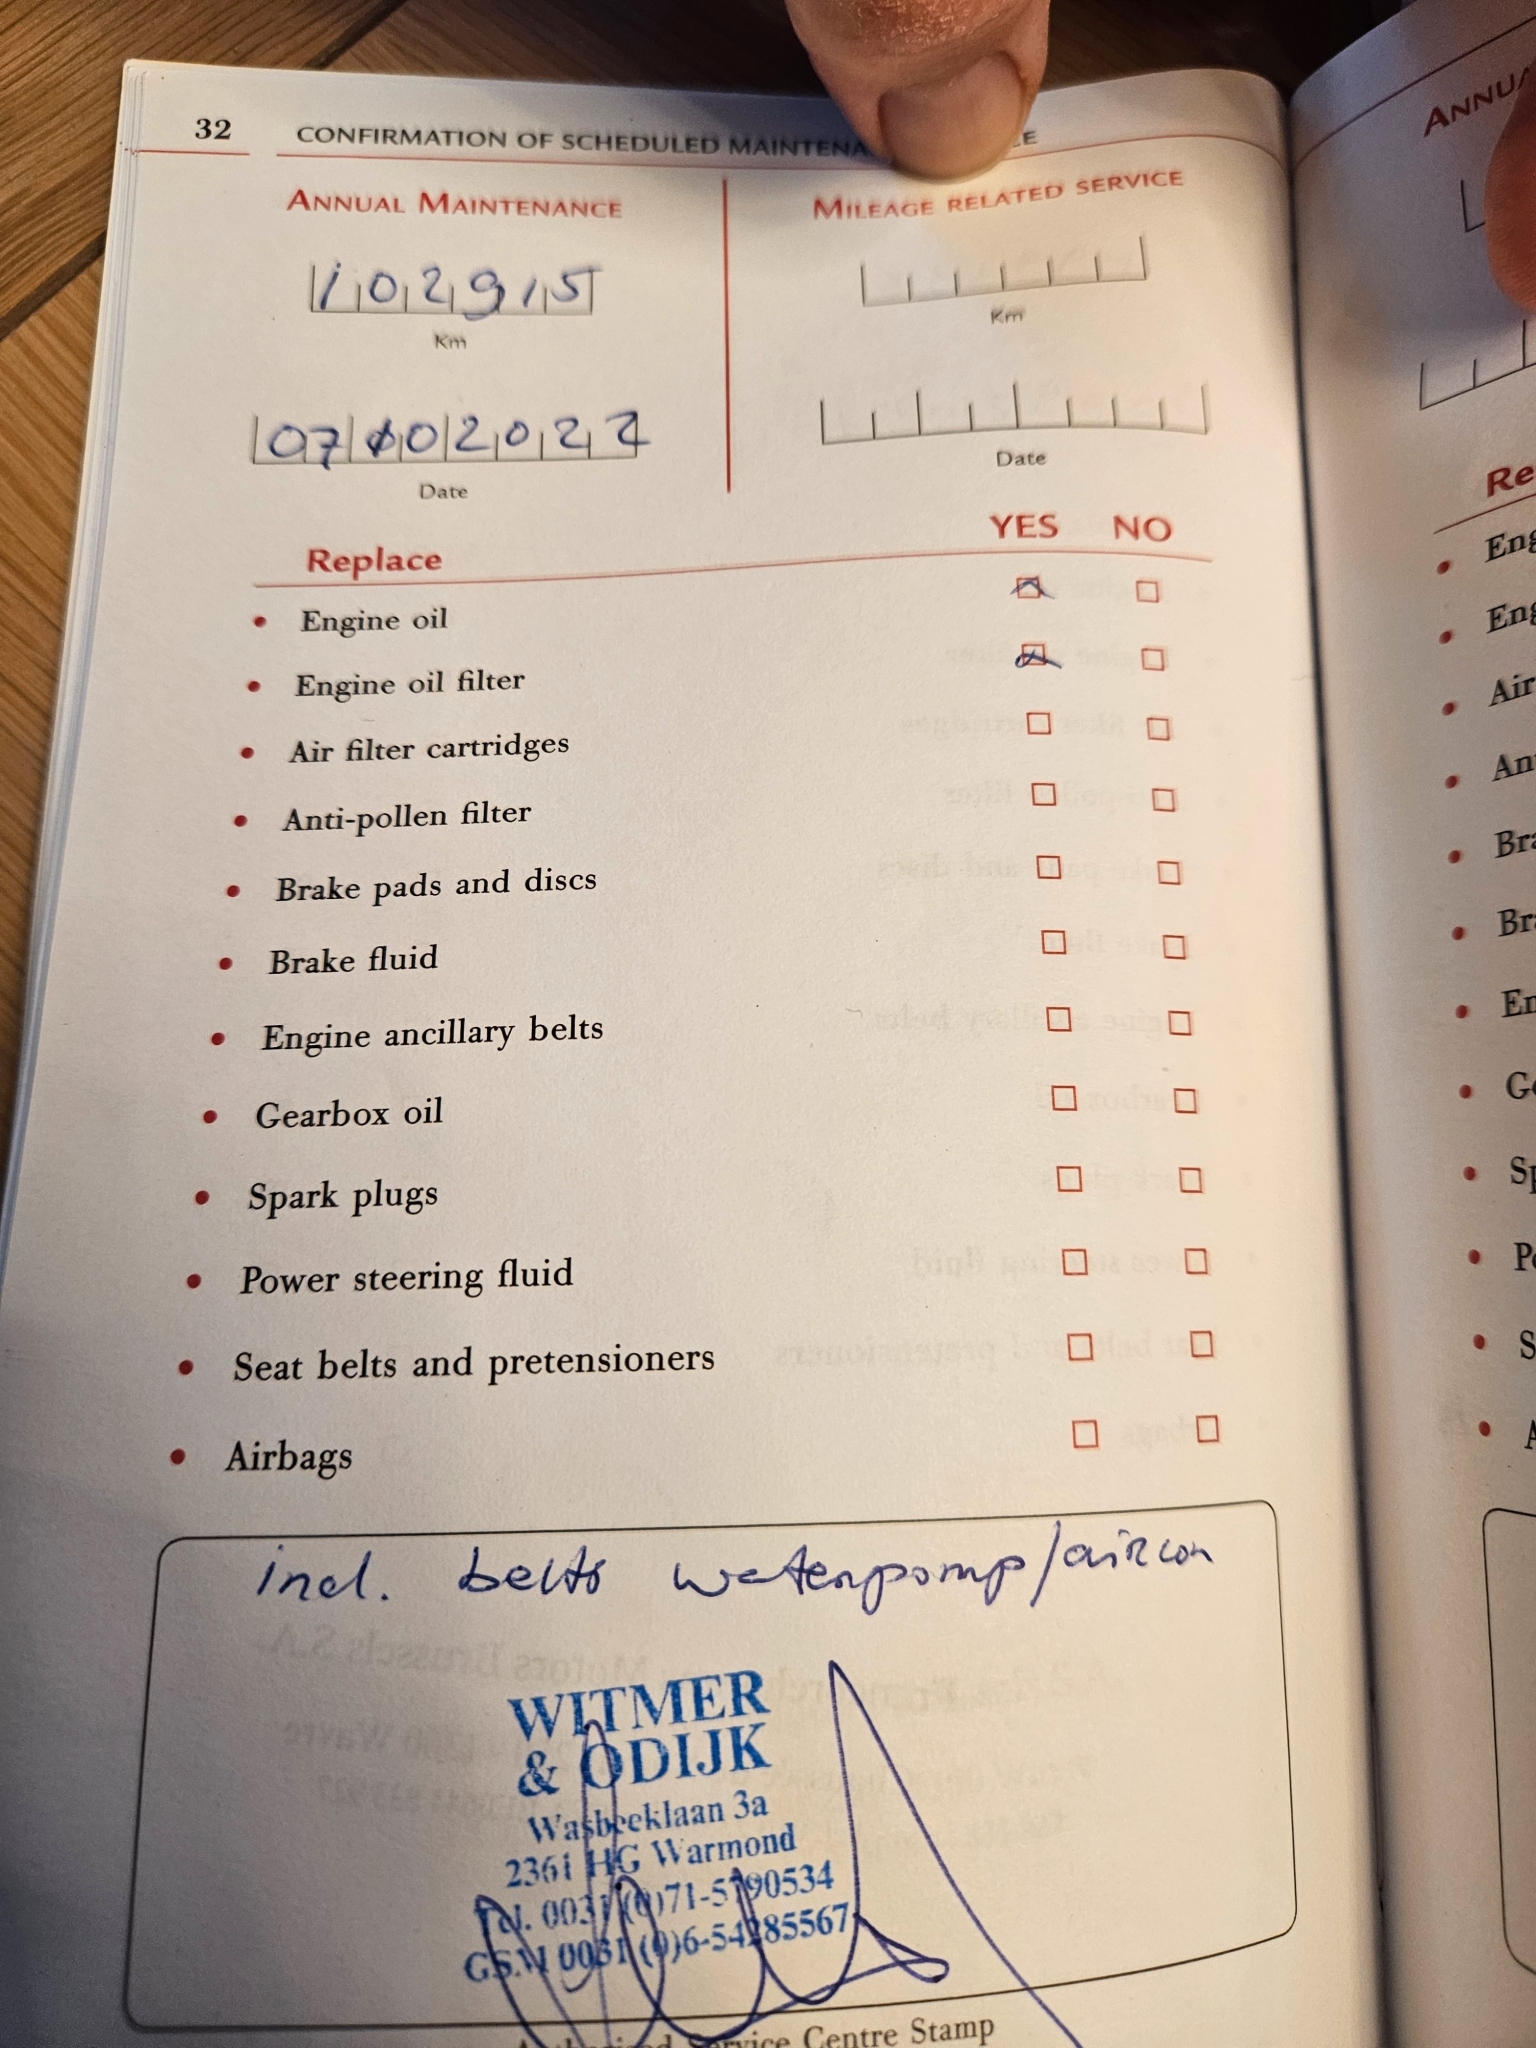 32 CONFIRMATION OF SCHEDULED
ANNUAL MAINTENANCE
102915
Km
07102022
Date
MILEAGE RELATED SERVICE
Km
Date
Replace YES NO
• Engine oil
• Engine oil filter
• Air filter cartridges
• Anti-pollen filter
• Brake pads and discs
• Brake fluid
• Engine ancillary belts
• Gearbox oil
• Spark plugs
• Power steering fluid
• Seat belts and pretensioners
• Airbags
incl. belts waterpomp/aircon
WITMER
& ODIJK
Wasbeeklaan 3a
2361 HG Warmond
Tel. 0031 (0)71-5790534
GSM 0031 (0)6-54285567
Service Centre Stamp